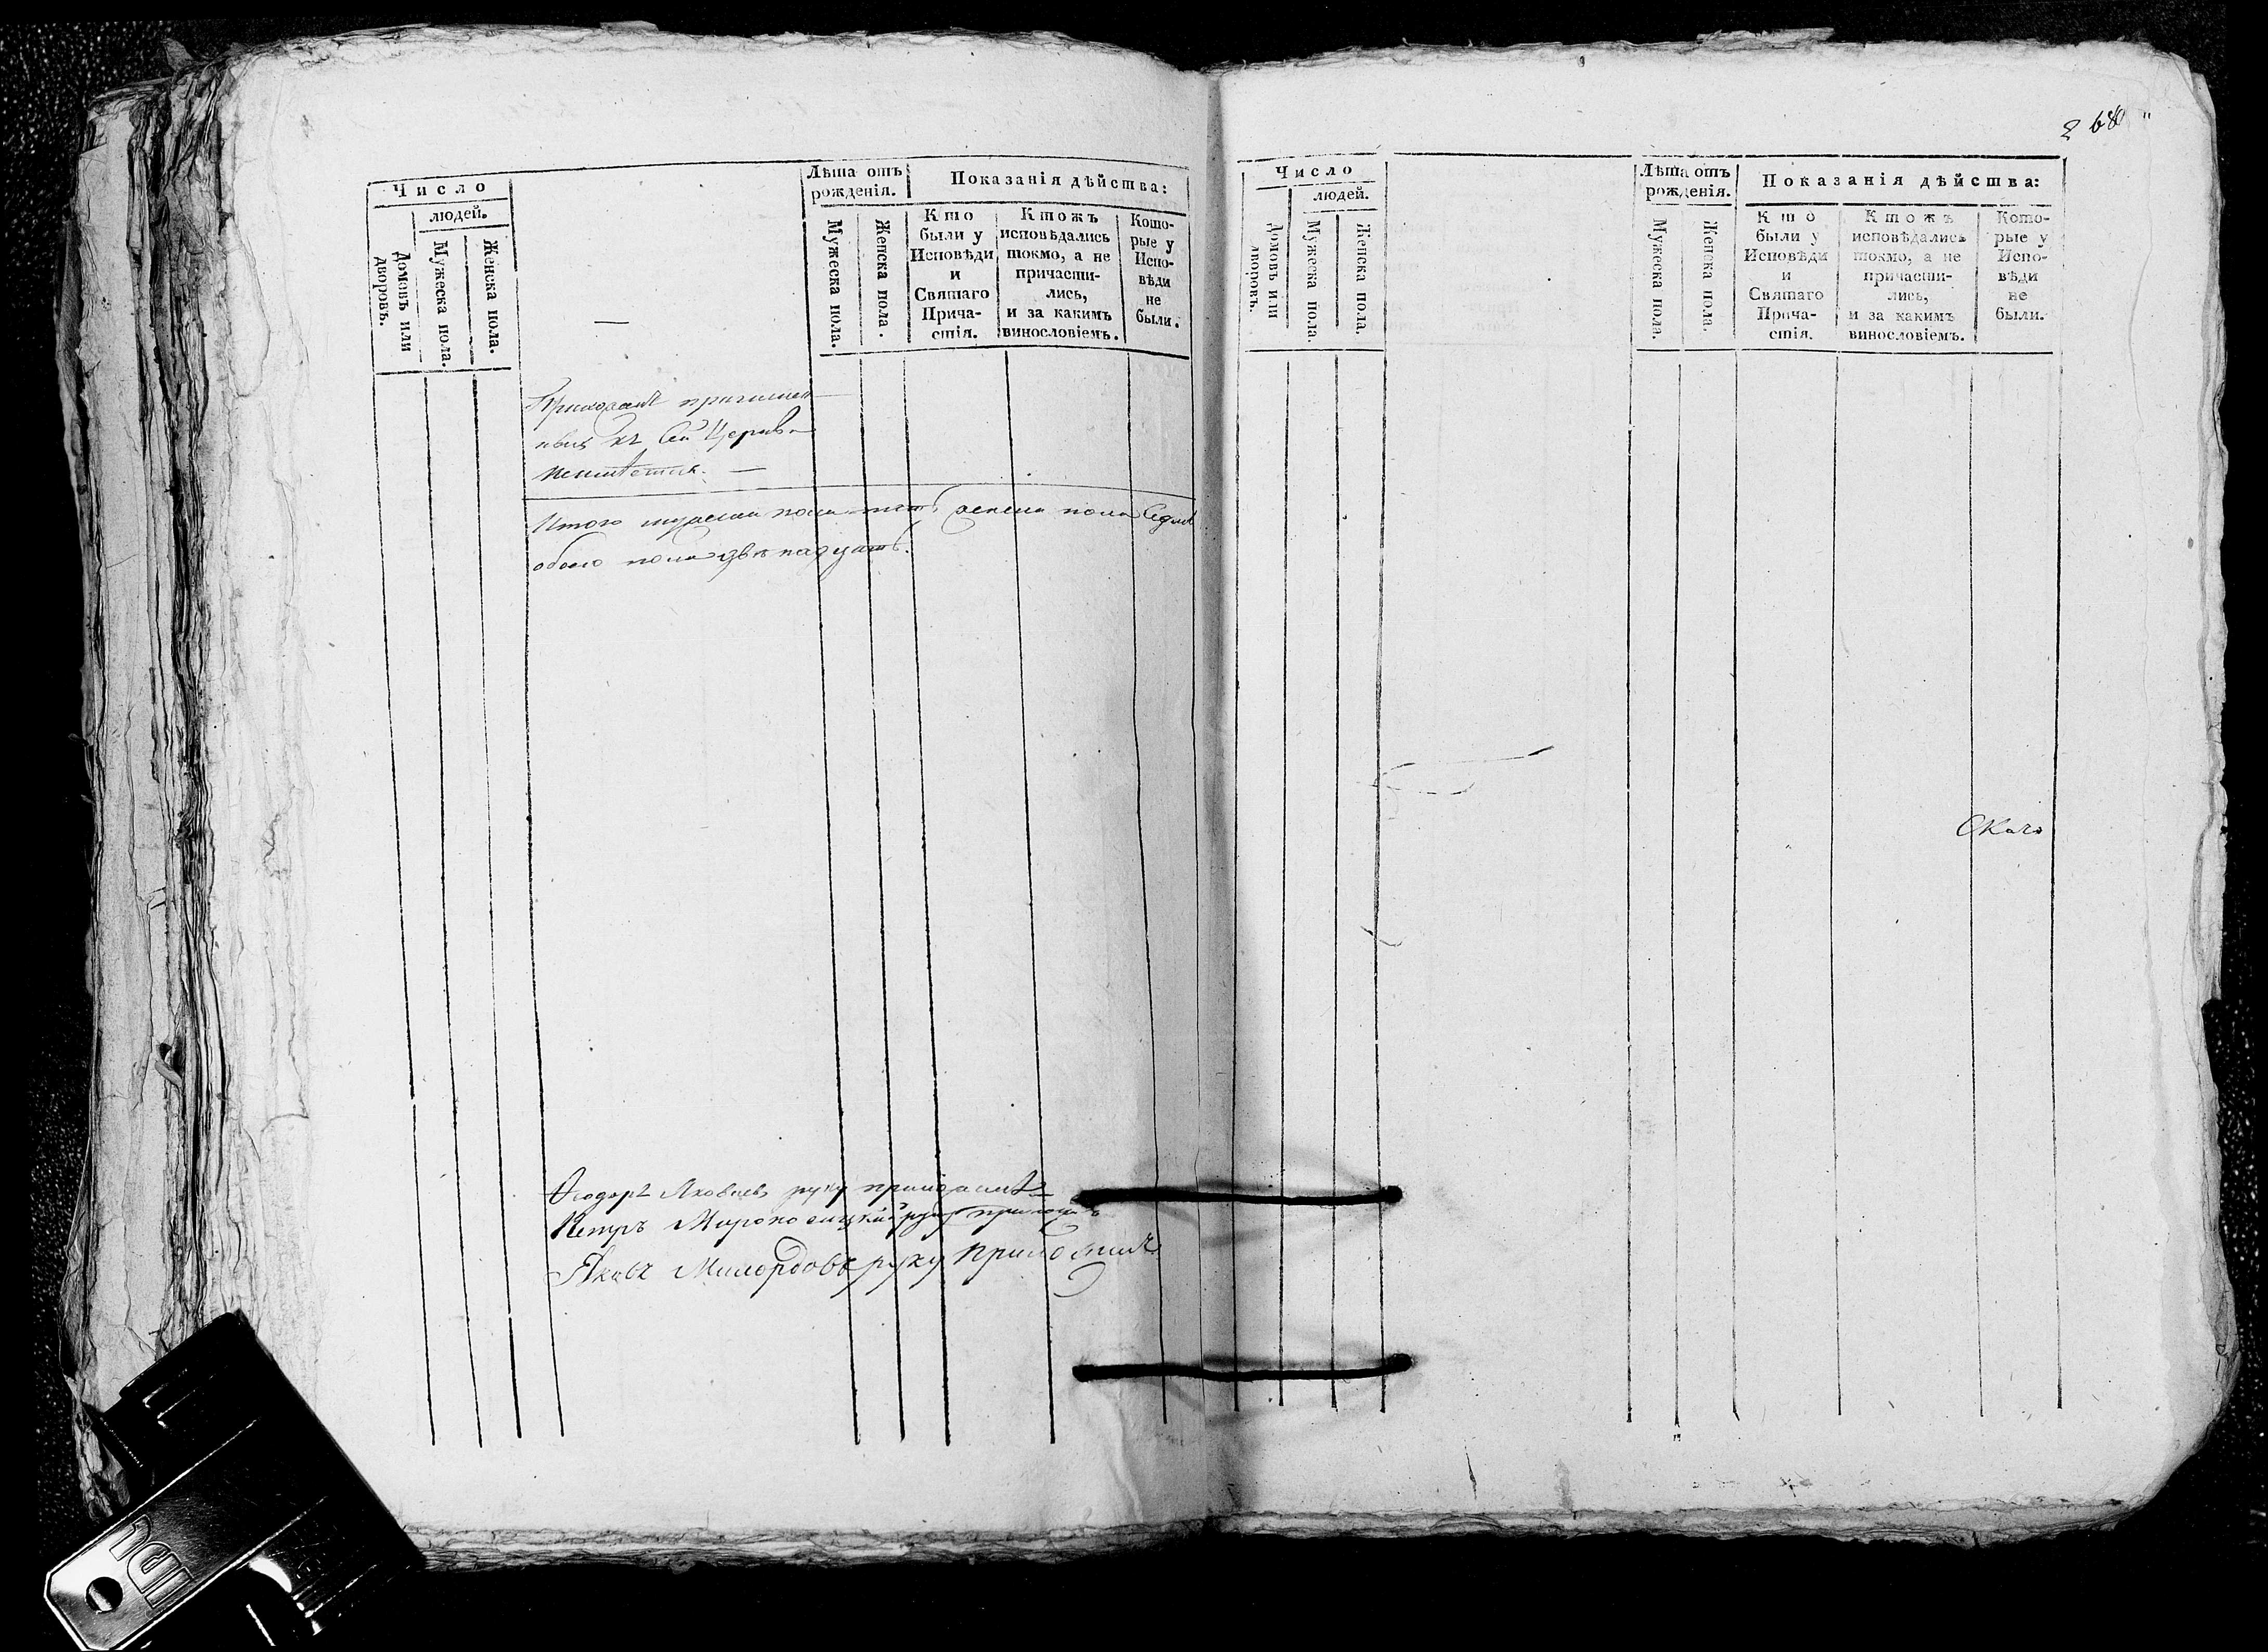 Число
людей.
Домовъ или дворовъ.
Мужеска пола.
Женска пола.
Лѣта отъ рожденія.
Мужеска пола.
Женска пола.
Показанія дѣйства:
Кто
были у
Исповѣди
и
Святаго
Прича-
стія.
Ктожъ
исповѣдались
токмо, а не
причасти-
лись,
и за какимъ
винословіемъ.
Кото-
рые у
Испо-
вѣди
не
были.
Приходскихъ
къ Сей Церкви
неимѣется. —
Итого мужеска пола пять женска пола Седмь
обоего пола двенадцать.
Ѳеодоръ Яковлевъ руку приложилъ
Петръ Мироносицкій руку приложилъ
Яковъ Милордовъ руку приложилъ
268
Число
людей.
Домовъ или дворовъ.
Мужеска пола.
Женска пола.
Лѣта отъ рожденія.
Мужеска пола.
Женска пола.
Показанія дѣйства:
Кто
были у
Исповѣди
и
Святаго
Прича-
стія.
Ктожъ
исповѣдались
токмо, а не
причасти-
лись,
и за какимъ
винословіемъ.
Кото-
рые у
Испо-
вѣди
не
были.